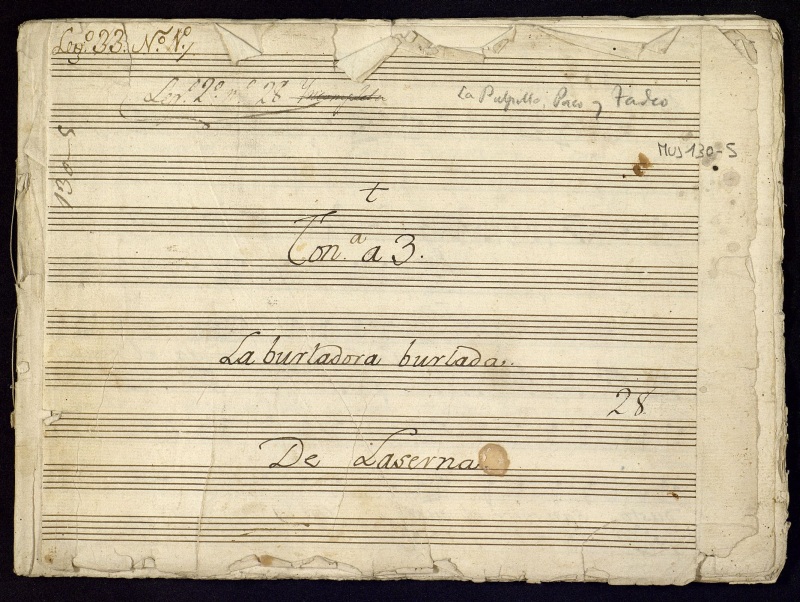 Leg.º 33. N.º N.º 1
Leg.º 2º nº 28 Yncompleta
La Pulpillo, Paco y Tadeo
130-5
MUS 130-5
t
Ton.ª a 3.
La burladora burlada.
28
De Laserna.